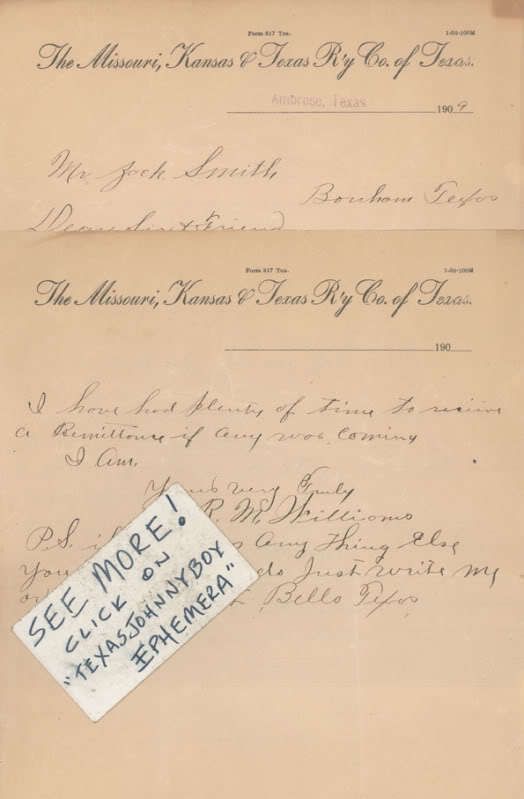 Form 817 Tex. 1-09-100M
The Missouri, Kansas & Texas R'y Co. of Texas.
Ambrose, Texas
1909
Mr. Jack Smith
Bonham Texas
Dear Sir & Friend
Form 817 Tex. 1-09-100M
The Missouri, Kansas & Texas R'y Co. of Texas.
190
I have had plenty of time to recieve
a Remittance if any was coming
I am.
Yours very Truly
R. M. Williams
P.S. if any thing Else
You do Just write me
Bells Texas
SEE MORE!
CLICK ON
"TEXASJOHNNYBOY
EPHEMERA"